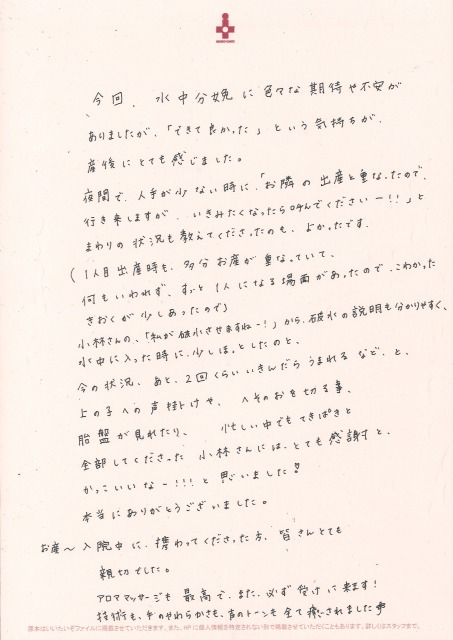 今回、水中分娩に色々な期待や不安が
ありましたが、「できて良かった」という気持ちが、
産後にとても感じました。
夜間で、人手が少ない時に、「お隣の出産と重なったので、
行き来しますが、いきみたくなったら呼んでくださいー!!」と
まわりの状況も教えてくださったのも、よかったです。
(1人目出産時も、多分お産が重なっていて、
何もいわれず、ずっと1人になる場面があったので、こわかった
きおくが少しあったので)
小林さんの、「私が破水させますねー!」から、破水の説明も分かりやすく、
水中に入った時に、少しほっとしたのと、
今の状況、あと、2回くらいいきんだらうまれるなど、と、
上の子への声掛けや、へそのおを切る事、
胎盤が見れたり、忙しい中でもてきぱきと
全部してくださった小林さんには、とても感謝と、
かっこいいなー!!!と思いました!
本当にありがとうございました。
お産〜入院中に、携わってくださった方、皆さんとても
親切でした。
アロママッサージも最高で、また、必ず受けに来ます!
技術も、手のやわらかさも、声のトーンも全て癒されました
原本はいいたいぞファイルに掲載させていただきます。また、HPに個人情報を特定されない形で掲載させていただくこともあります。詳しくはスタッフまで。